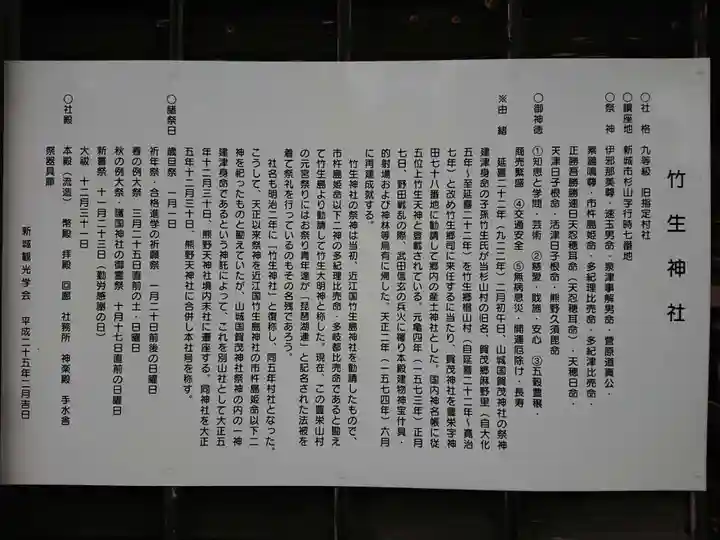 竹生神社
○社格 九等級 旧指定村社
○鎮座地 新城市杉山字行時七番地
○祭神 伊邪那美尊・速玉男命・泉津事解男命・菅原道真公・
素盞嗚尊・市杵島姫命・多紀理比売命・多紀津比売命・
正勝吾勝勝速日天忍穂耳命(天忍穂耳命)・天穂日命・
天津日子根命・活津日子根命・熊野久須毘命
○御神徳 ①知恵と学問・芸術 ②慈愛・戝施・安心 ③五穀豊穣・
商売繁盛 ④交通安全 ⑤無病息災・開運厄除け・長寿
※由緒 延喜二十二年(九二二年)二月初午日、山城国賀茂神社の祭神
建津身命の子孫竹生氏が当杉山村の旧名、賀茂郷麻野里(自大化
五年~至延喜二十二年)を竹生郷楊山村(自延喜二十二年~寛治
七年)と改め竹生郷司に来任するに当たり、賀茂神社を豊栄字神
田七十八番地に勧請して郷内の産土神社とした。国内神名帳に従
五位上竹生天神と登載されている。元亀四年(一五七三年)正月
七日、野田戦乱の際、武田信玄の兵火に罹り本殿建物神宝什具・
的射場および神林等烏有に帰した。天正二年(一五七四年)六月
に再建成就する。
竹生神社の祭神は当初、近江国竹生島神社を勧請したもので、
市杵島姫命以下二神の多紀理比売命・多岐都比売命であると崩え
て竹生島より勧請して竹生大明神と称した。現在、この豊栄山村
の元宮祭りにはお祭り青年達が「琵琶湖連」と記名された法被を
着て祭礼を行っているのもその名残であろう。
社名も明治二年に「竹生神社」と復称し、同五年村社となった。
こうして、天正以来祭神を近江国竹生島神社の市杵島姫命以下二
神を祀ったものと勘えていたが、山城国賀茂神社祭神の内の一神
建津身命であるという神託によって、これを別山社として大正五
年十二月三十日、熊野天神社境内末社に遷座する。同神社を大正
五年十二月三十日、熊野天神社に合併し本社号を称す。
○諸祭日 歳旦祭 一月一日
祈年祭・合格進学の祈願祭 一月二十日前後の日曜日
春の例大祭 三月二十五日直前の土・日曜日
秋の例大祭・護国神社の御霊祭 十月十七日直前の日曜日
新嘗祭 十一月二十三日(勤労感謝の日)
大祓 十二月三十一日
○社殿 本殿(流造) 幣殿 拝殿 回廊 社務所 神楽殿 手水舎
祭器具庫
新城観光学会 平成二十五年二月吉日